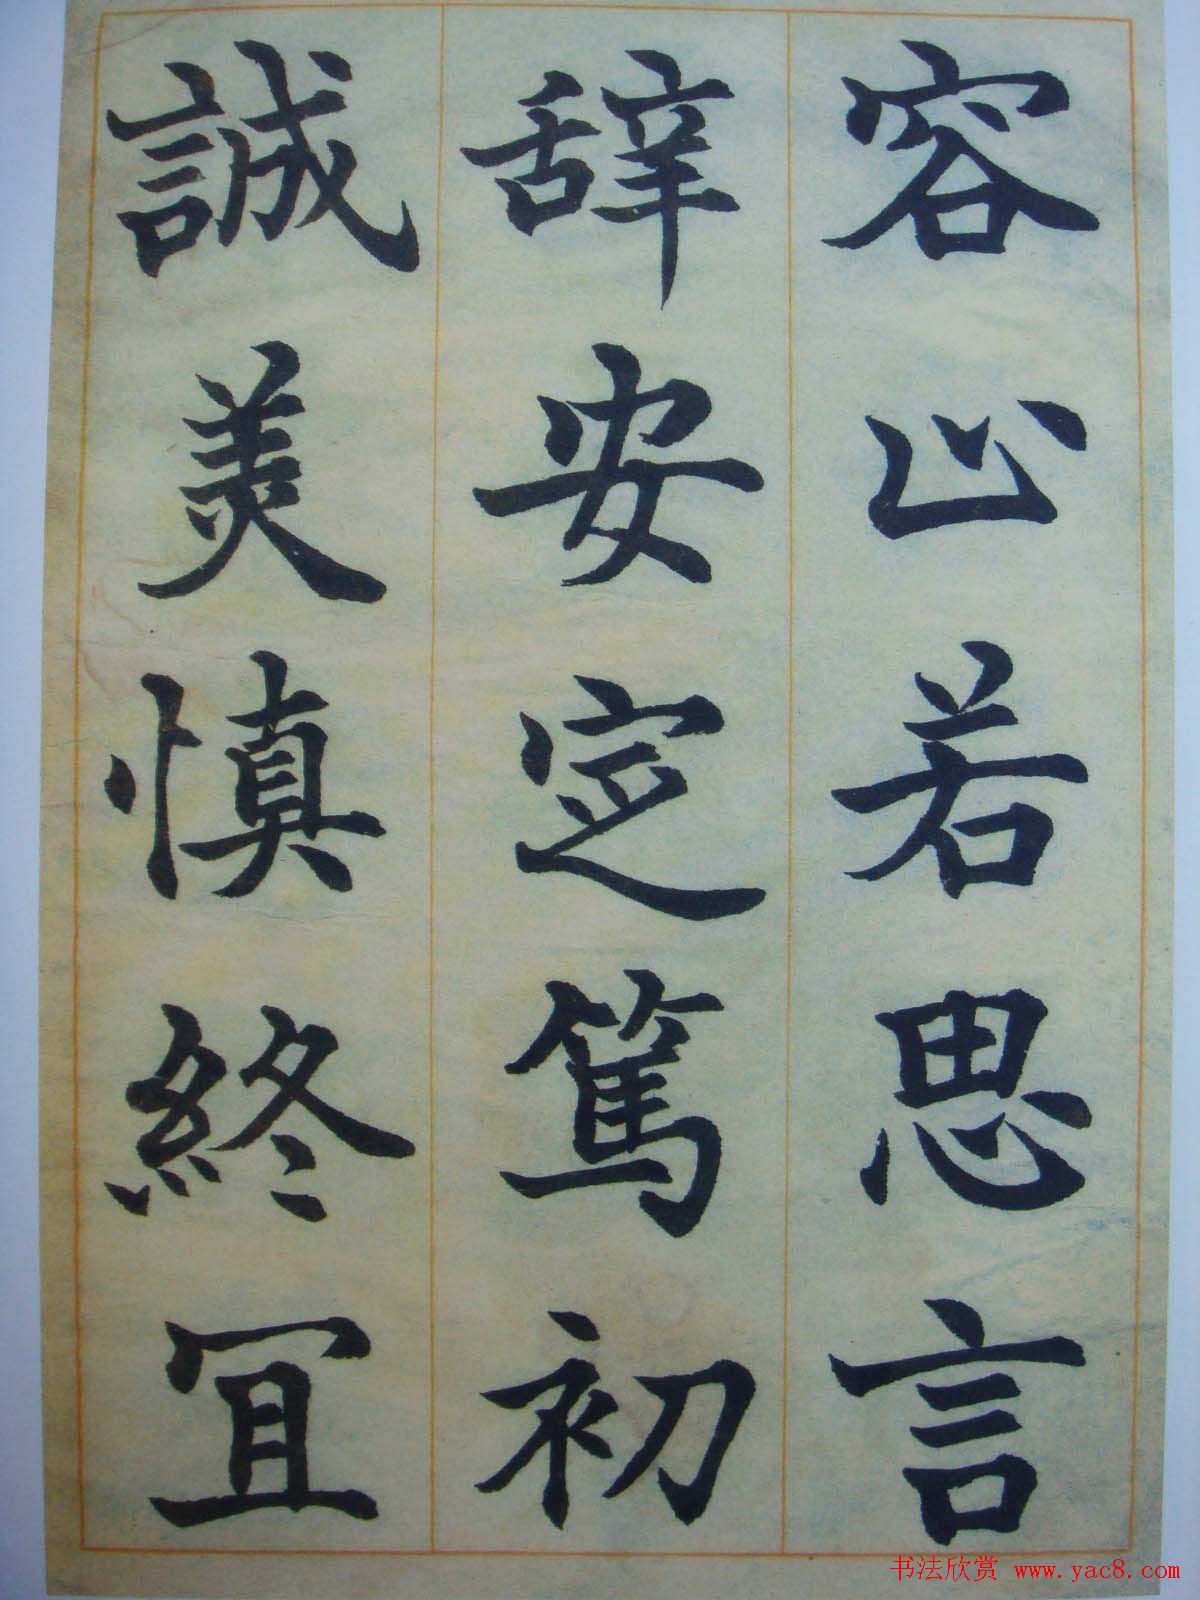 容止若思言
辞安定篤初
誠美慎終宜
书法欣赏 www.yac8.com